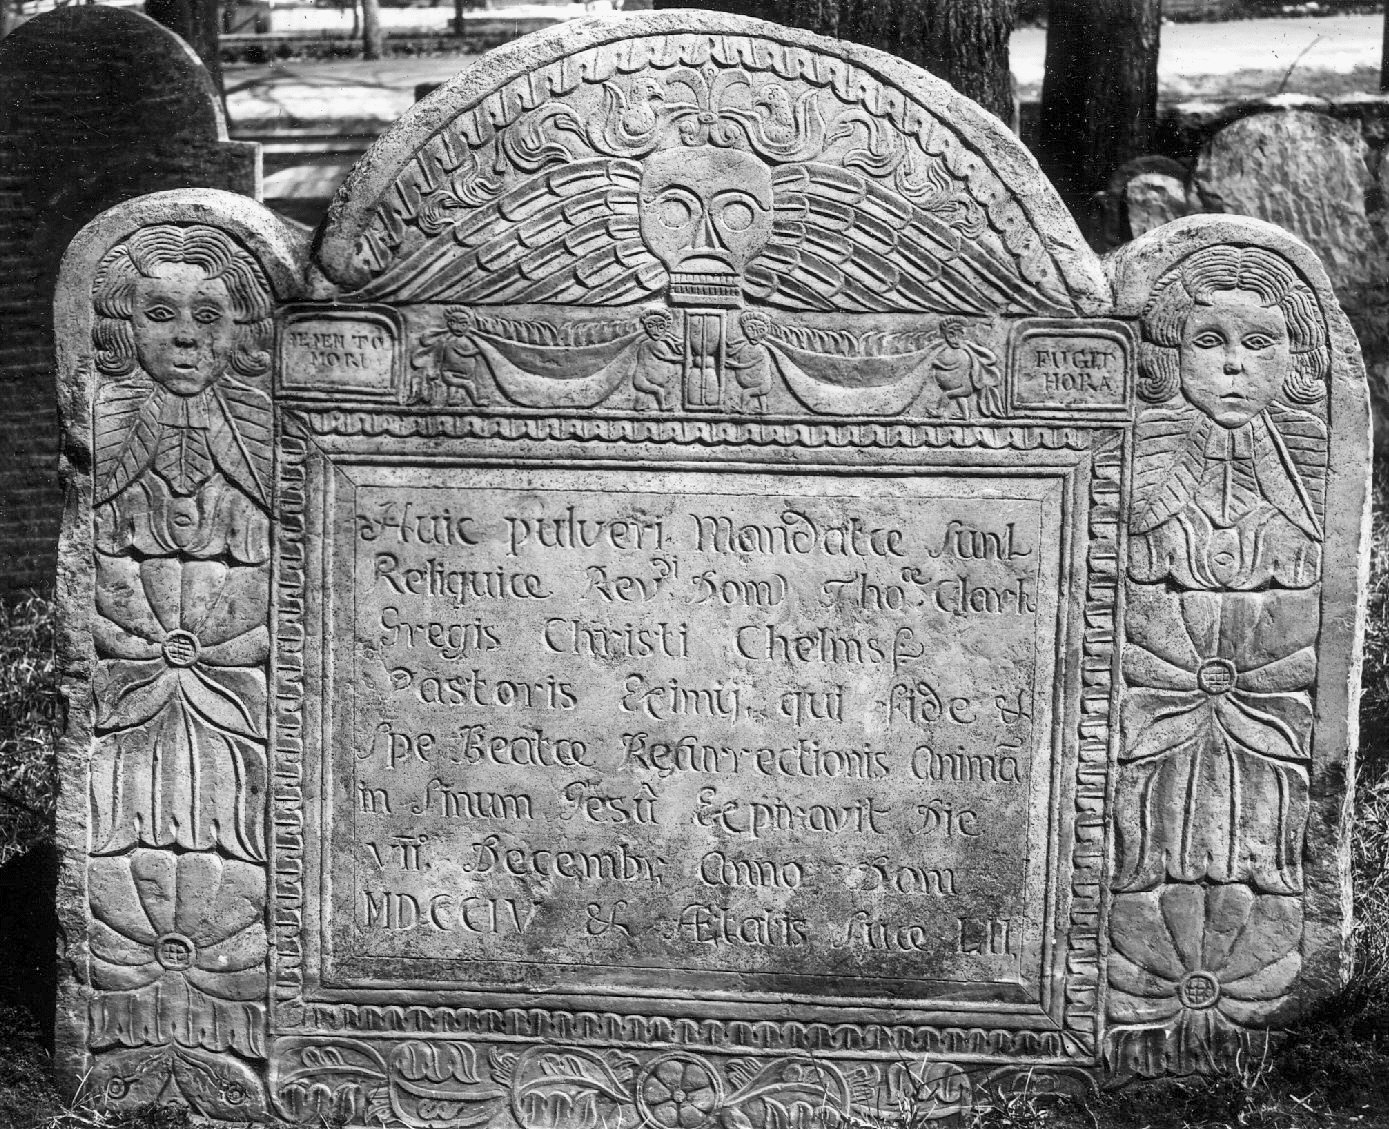 MEMENTO
MORI
FUGIT
HORA
Huic pulveri Mandatæ sunt
Reliquiæ Revᵈⁱ Domⁿⁱ Thoᵃᵉ Clark
Gregis Christi Chelmsf
Pastoris Eximij, qui fide &
spe Beatæ Resurrectionis animā
in sinum Jesū Expiravit Die
VII. Decembr, Anno Dom
MDCCIV & Ætatis suæ LII.